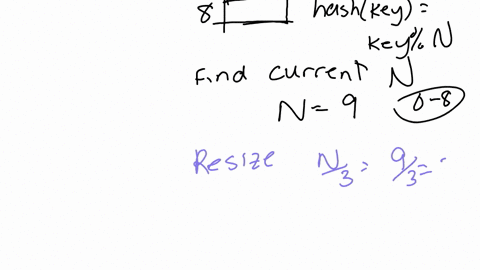 8 hash(key) =
key% N
Find current N
N = 9 0-8
Resize N/3 = 9/3 =